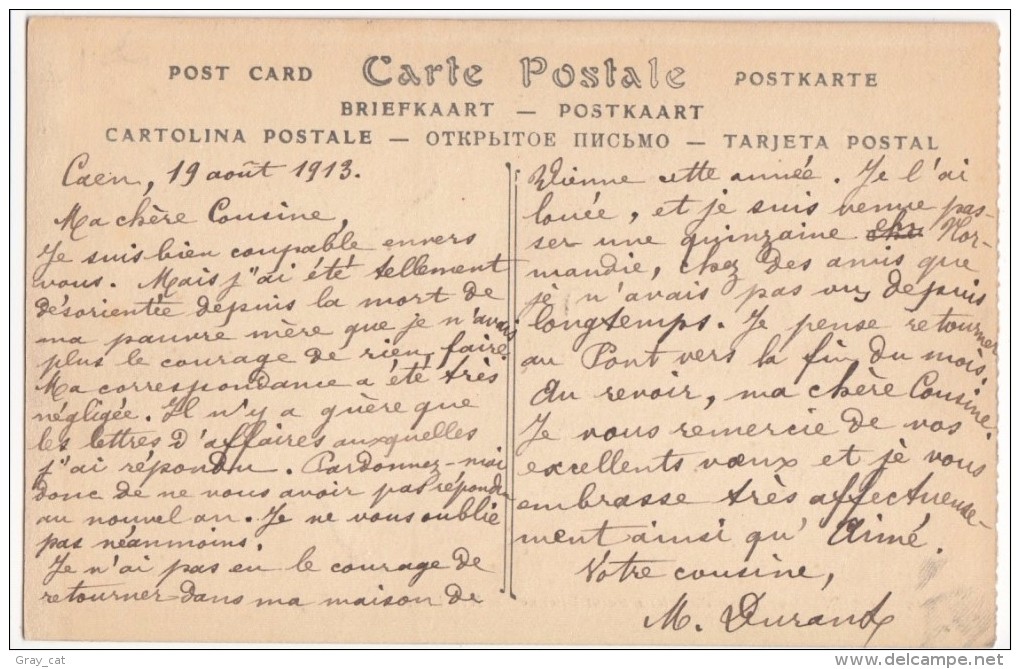 POST CARD Carte Postale POSTKARTE
BRIEFKAART — POSTKAART
CARTOLINA POSTALE — ОТКРЫТОЕ ПИСЬМО — TARJETA POSTAL
Caen, 19 août 1913.
Ma chère Cousine,
Je suis bien coupable envers
vous. Mais j'ai été tellement
désorientée depuis la mort de
ma pauvre mère que je n'avais
plus le courage de rien faire.
Ma correspondance a été très
négligée. Il n'y a guère que
les lettres d'affaires auxquelles
j'ai répondu. Pardonnez-moi
donc de ne vous avoir pas répondu
au nouvel an. Je ne vous oublie
pas néanmoins.
Je n'ai pas eu le courage de
retourner dans ma maison de
Vienne cette année. Je l'ai
louée, et je suis venue pas-
ser une quinzaine Nor-
mandie, chez des amis que
je n'avais pas vus depuis
longtemps. Je pense retourner
au Pont vers la fin du mois.
Au revoir, ma chère Cousine.
Je vous remercie de vos
excellents vœux et je vous
embrasse très affectueuse-
ment ainsi qu'Aimé.
Votre cousine,
M. Durand
Gray_cat
www.delcampe.net